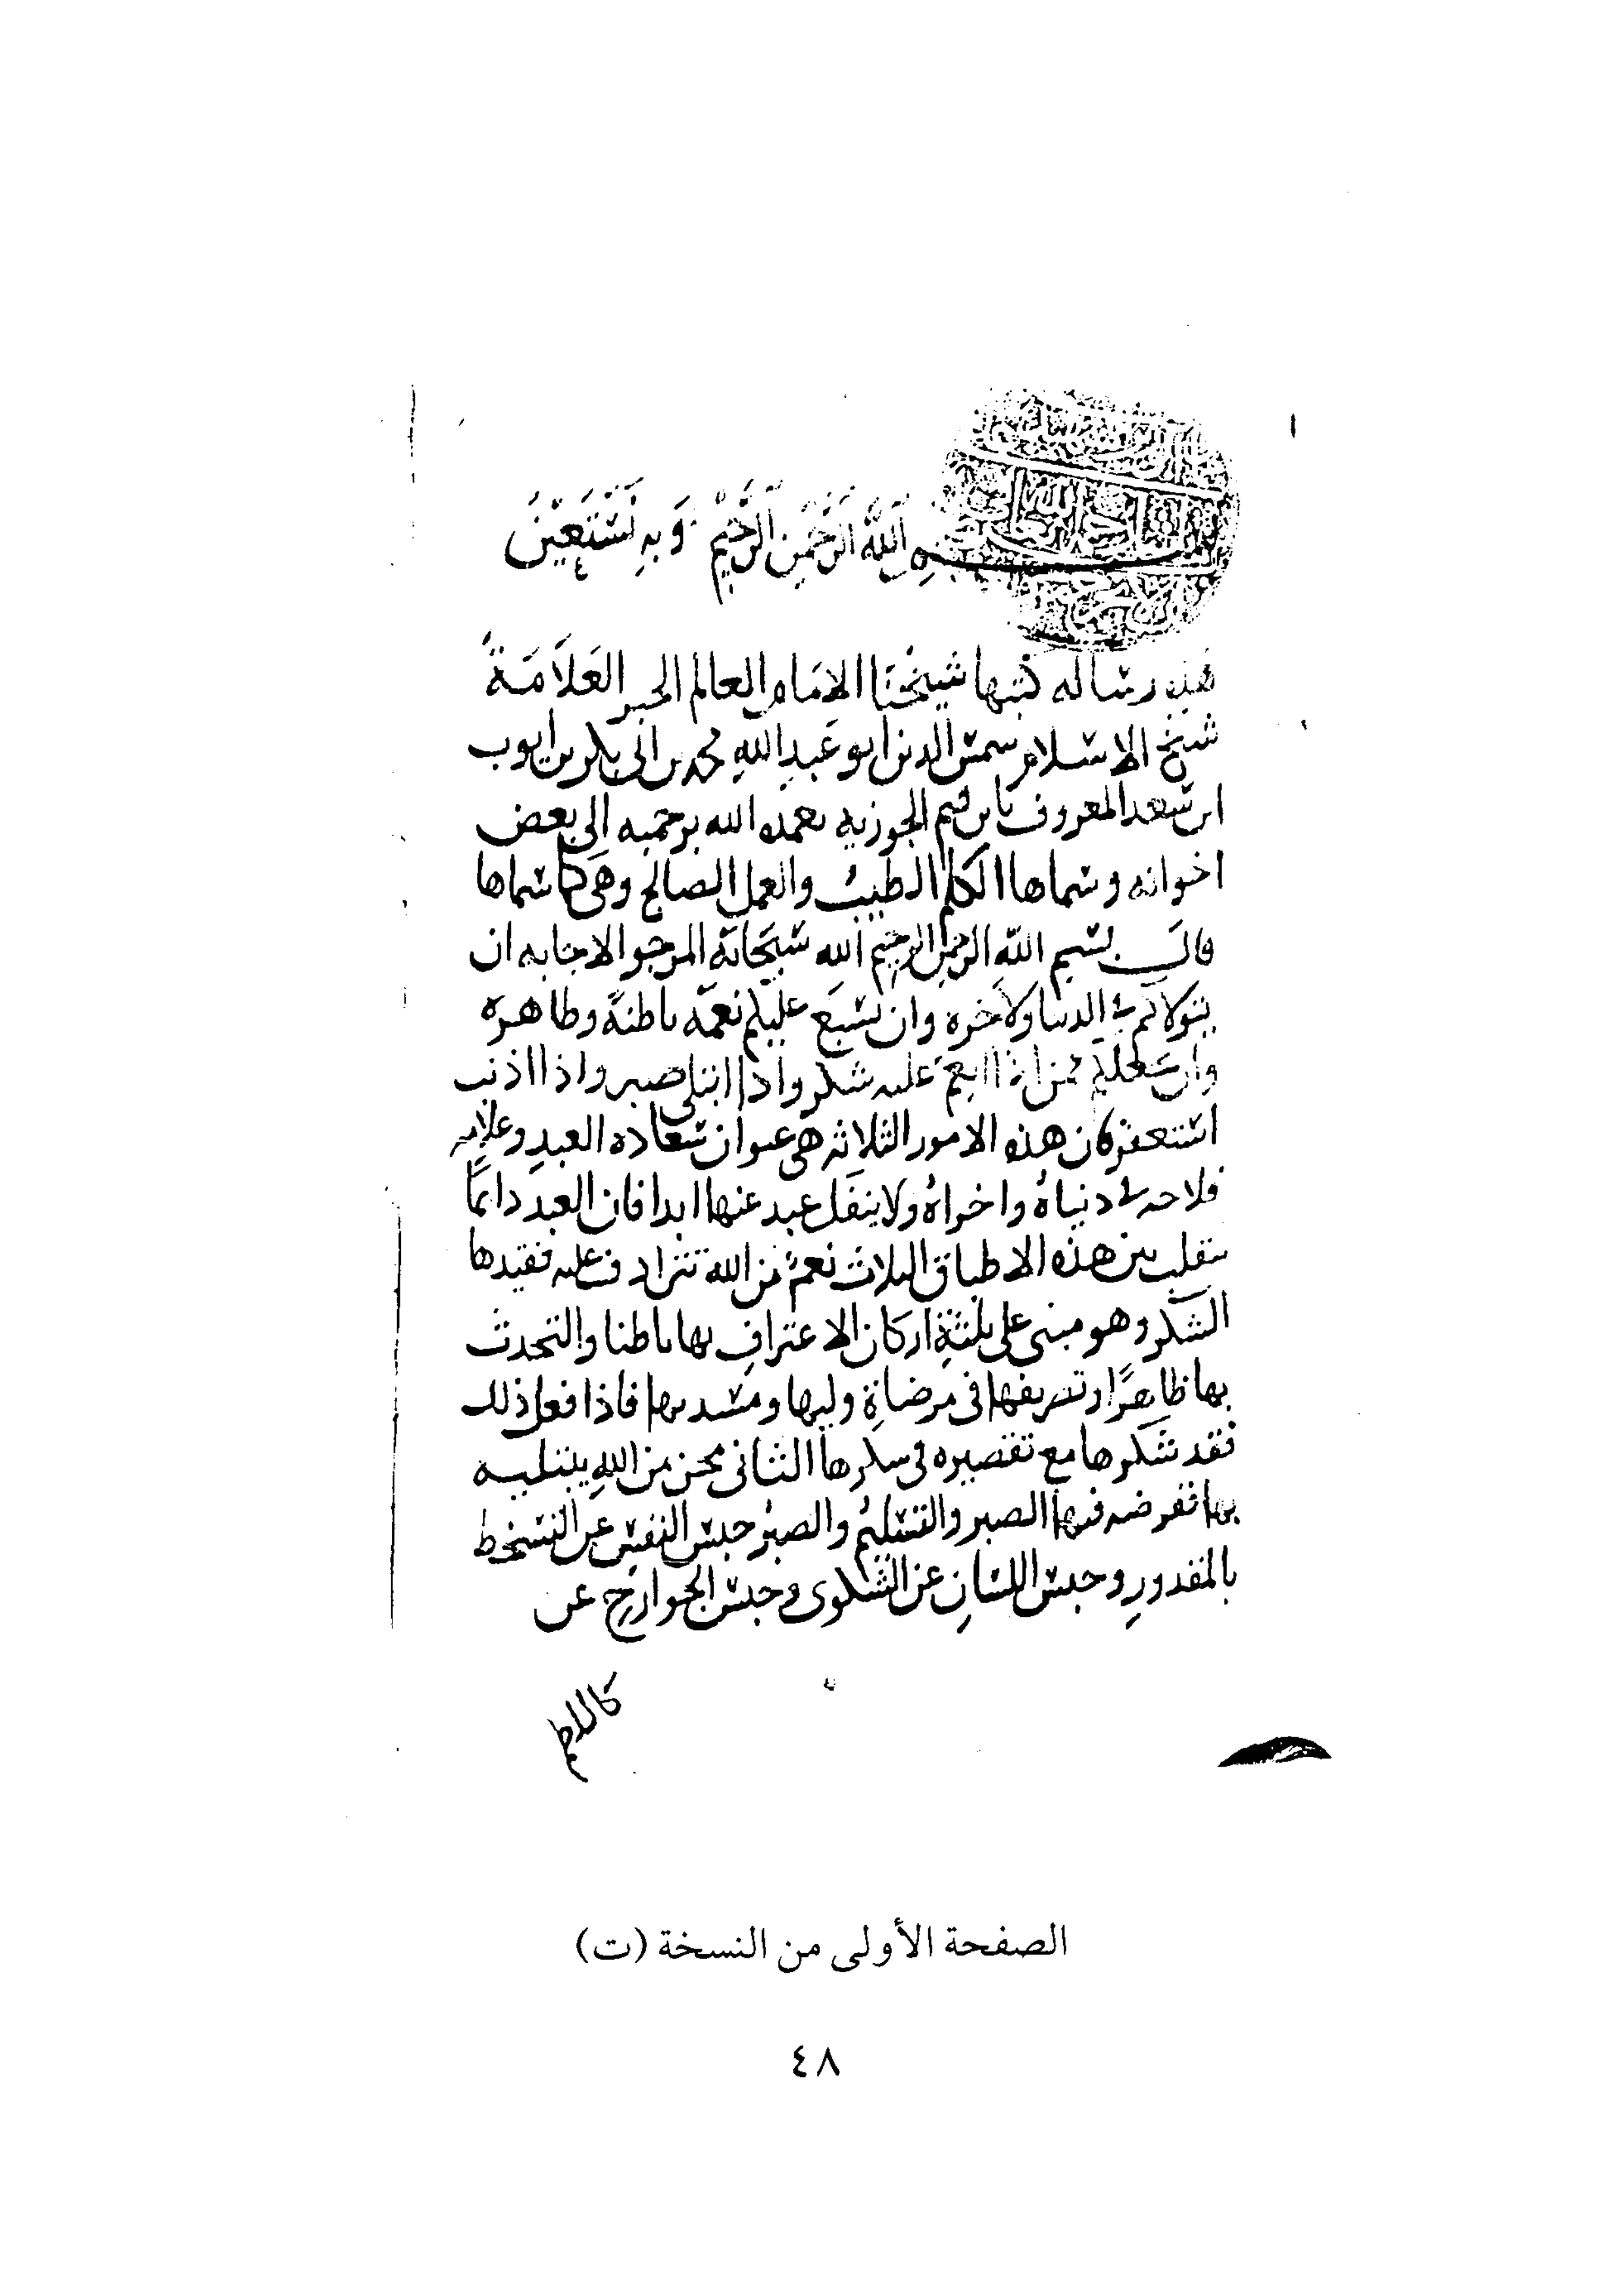 بسم الله الرحمن الرحيم وبه نستعين
هذه رساله كتبها شيخنا الامام العالم الحبر العلامة
شيخ الاسلام شمس الدين ابو عبد الله محمد بن ابى بكر بن ايوب
ابن سعد المعروف بابن قيم الجوزيه تغمده الله برحمته الى بعض
اخوانه وسماها الكلم الطيب والعمل الصالح وهى كما سماها
قال بسم الله الرحمن الرحيم الله سبحانه المرجو الاجابه ان
يتولاكم فى الدنيا والاخره وان يسبغ عليكم نعمه باطنة وظاهره
وان يجعلكم ممن اذا انعم عليه شكر واذا ابتلى صبر واذا اذنب
استغفر فان هذه الامور الثلاثه هى عنوان سعاده العبد وعلامه
فلاحه فى دنياه واخراه ولا ينفك عبد عنها ابدا فان العبد دائما
يتقلب بين هذه الاطباق الثلاث نعم من الله تترادف عليه فقيدها
الشكر وهو مبنى على ثلثة اركان الاعتراف بها باطنا والتحدث
بها ظاهرا وتصريفها فى مرضاة وليها ومسديها فاذا فعل ذلك
فقد شكرها مع تقصيره فى شكرها الثانى محن من الله يبتليه
بها ففرضه فيها الصبر والتسليم والصبر حبس النفس عن التسخط
بالمقدور وحبس اللسان عن الشكوى وحبس الجوارح عن
كاللطم
الصفحة الأولى من النسخة (ت)
٤٨